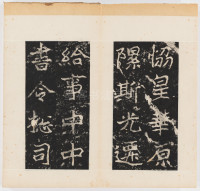 協皇華原
隰斯光還
給事中中
書令越司